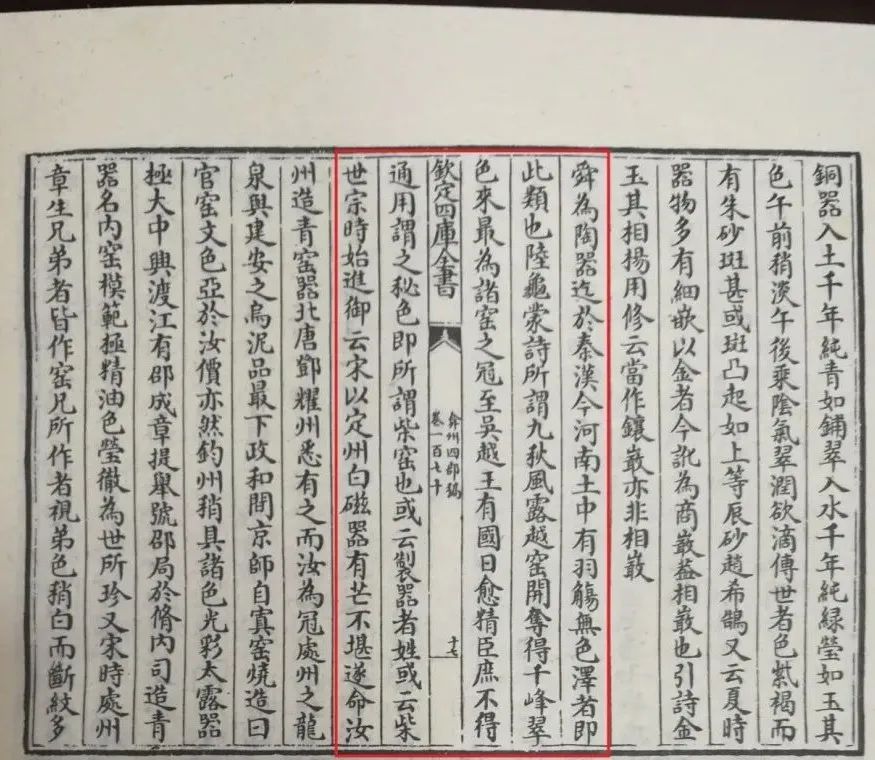 銅器入土千年純青如鋪翠入水千年純緑瑩如玉其
色午前稍淡午後乘陰氣翠潤欲滴傳世者色紫褐而
有朱砂斑甚或斑凸起如上等辰砂趙希鵠又云夏時
器物多有細嵌以金者今訛為商嵌葢相嵌也引詩金
玉其相揚用修云當作鑲嵌亦非相嵌
舜為陶器迄於秦漢今河南土中有羽觴無色澤者即
此類也陸龜蒙詩所謂九秋風露越窑開奪得千峰翠
色來最為諸窑之冠至吳越王有國日愈精臣庶不得
欽定四庫全書
弇州四部稿
卷一百七十
十七
通用謂之秘色即所謂柴窑也或云製器者姓或云柴
世宗時始進御云宋以定州白磁器有芒不堪遂命汝
州造青窑器北唐鄧耀州悉有之而汝為冠處州之龍
泉與建安之烏泥品最下政和間京師自寘窑燒造曰
官窑文色亞於汝價亦然鈞州稍具諸色光彩太露器
極大中興渡江有邵成章提舉號邵局於脩内司造青
器名内窑模範極精油色瑩徹為世所珍又宋時處州
章生兄弟者皆作窑兄所作者視弟色稍白而斷紋多